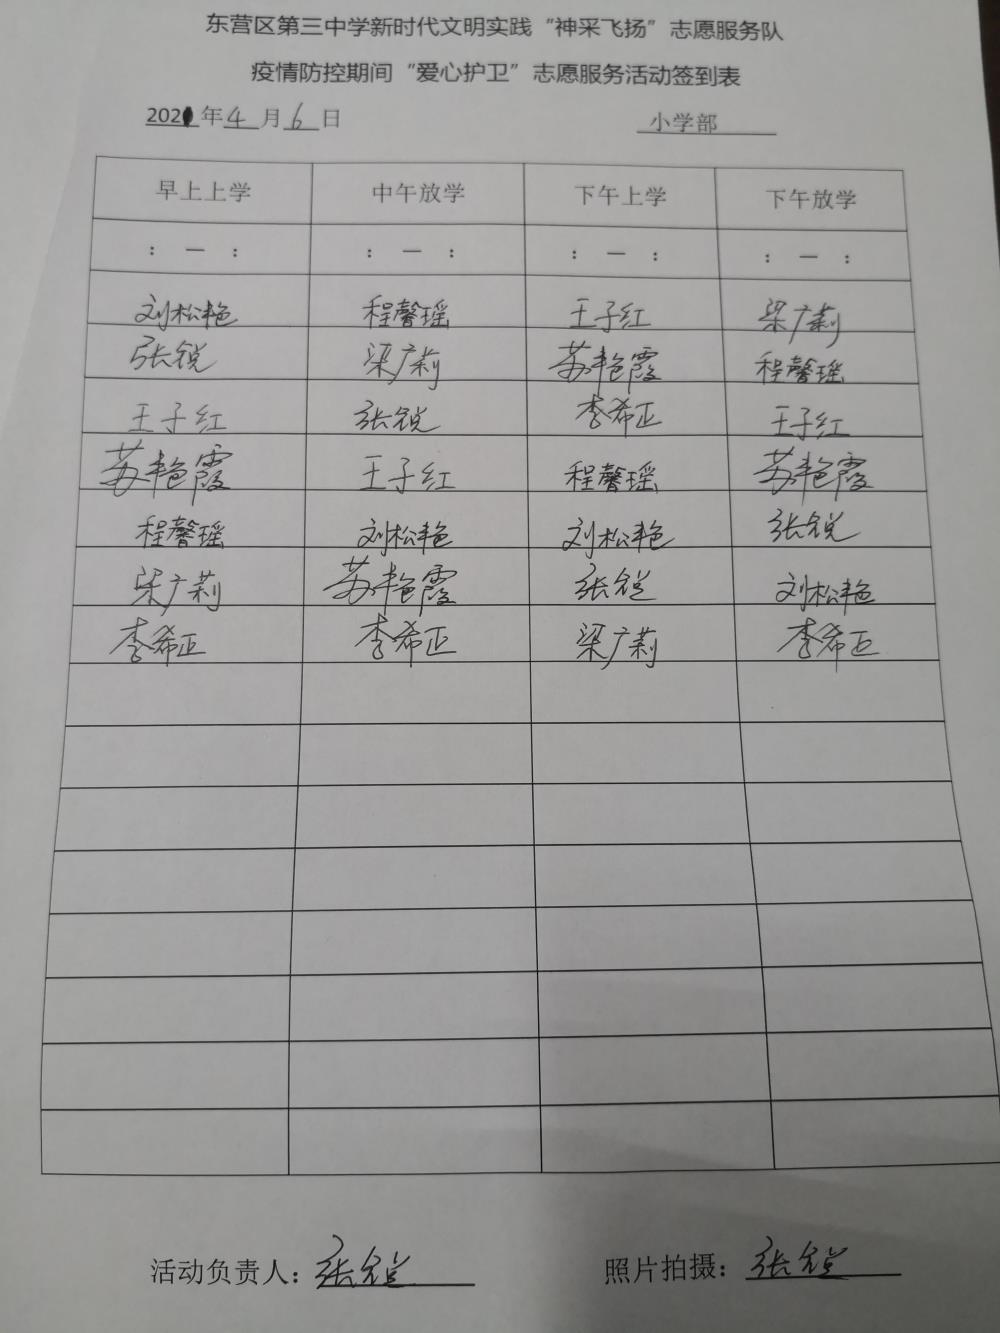 东营区第三中学新时代文明实践“神采飞扬”志愿服务队
疫情防控期间“爱心护卫”志愿服务活动签到表
2021年4月6日 小学部
早上上学 中午放学 下午上学 下午放学
: — : : — : : — : : — :
刘松艳 程馨瑶 王子红 梁广莉
张锐 梁广莉 苏艳霞 程馨瑶
王子红 张锐 李希正 王子红
苏艳霞 王子红 程馨瑶 苏艳霞
程馨瑶 刘松艳 刘松艳 张锐
梁广莉 苏艳霞 张锐 刘松艳
李希正 李希正 梁广莉 李希正
活动负责人：张锐 照片拍摄：张锐